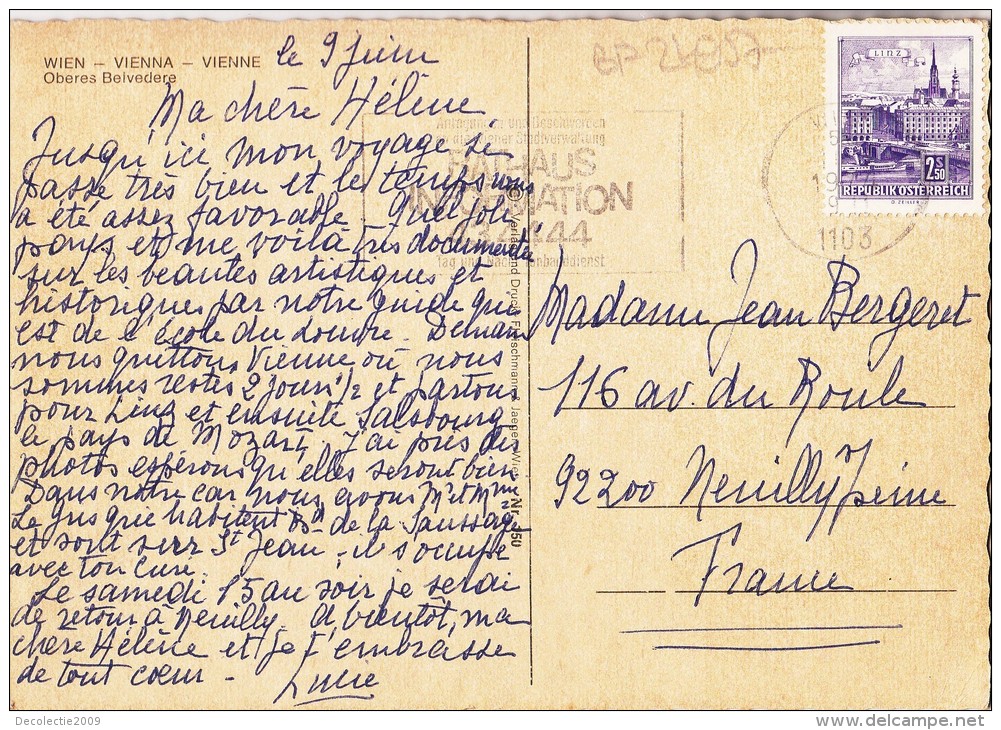 WIEN – VIENNA – VIENNE
Oberes Belvedere
le 9 juin
Ma chère Hélène
Jusqu'ici mon voyage se
passe très bien et le temps nous
a été assez favorable. Quel joli
pays et me voilà très documentée
sur les beautes artistiques et
historiques par notre guide qui
est de l'École du Louvre. Demain
nous quittons Vienne où nous
sommes restés 2 jours 1/2 et partons
pour Linz et ensuite Salsbourg
le pays de Mozart. J'ai pris des
photos espérons qu'elles seront bien
Dans notre car nous avons Mr et Mme
qui habitent Bd de la Saussaye
et sont sur St Jean - il s'occupe
avec ton curé.
Le samedi 15 au soir je serai
de retour à Neuilly. A bientôt, ma
chère Hélène et je t'embrasse
de tout coeur -
Lucie
RATHAUS
INFORMATION
434444
Tag und Nacht
LINZ
2S50
REPUBLIK ÖSTERREICH
1103
Madame Jean Bergeret
116 av. du Roule
92200 Neuilly s/ Seine
France
Decolectie2009
delcampe.net